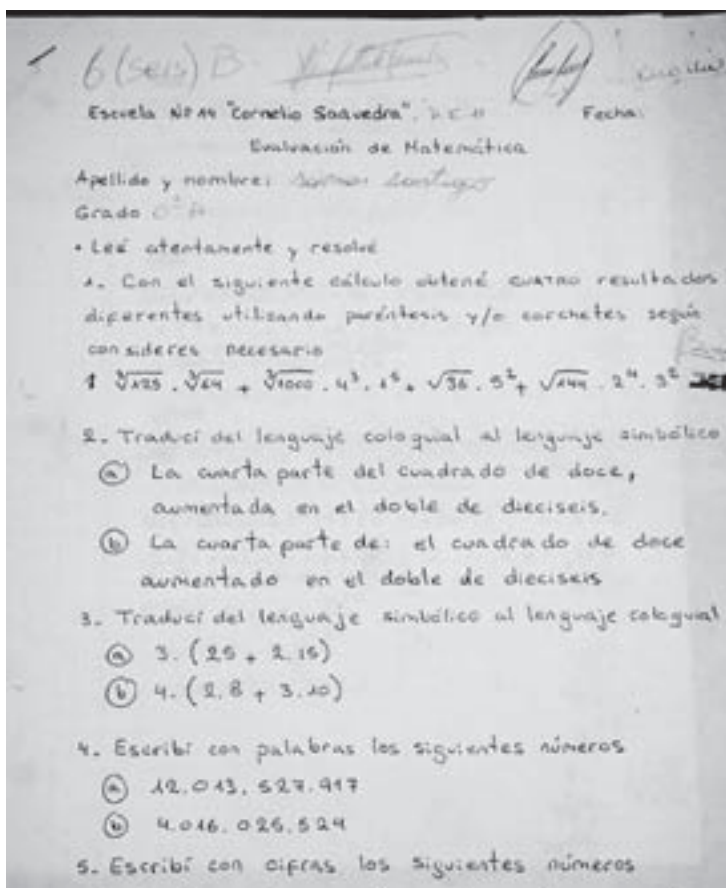 6 (seis) B
Escuela Nº 14 "Cornelio Saavedra". D E 11 Fecha:
Evaluación de Matemática
Apellido y nombre: Santiago
Grado 6º A
• Leé atentamente y resolvé
1. Con el siguiente cálculo obtené cuatro resultados
diferentes utilizando paréntesis y/o corchetes según
consideres necesario
∛125 . ∛64 + ∛1000 . 4³ . 1⁵ + √36 . 5² + √144 . 2⁴ . 3²
2. Traducí del lenguaje coloquial al lenguaje simbólico
ⓐ La cuarta parte del cuadrado de doce,
aumentada en el doble de dieciseis.
ⓑ La cuarta parte de: el cuadrado de doce
aumentado en el doble de dieciseis
3. Traducí del lenguaje simbólico al lenguaje coloquial
ⓐ 3. (25 + 2.15)
ⓑ 4. (2.8 + 3.10)
4. Escribí con palabras los siguientes números
ⓐ 12.013.527.917
ⓑ 4.016.025.524
5. Escribí con cifras los siguientes números